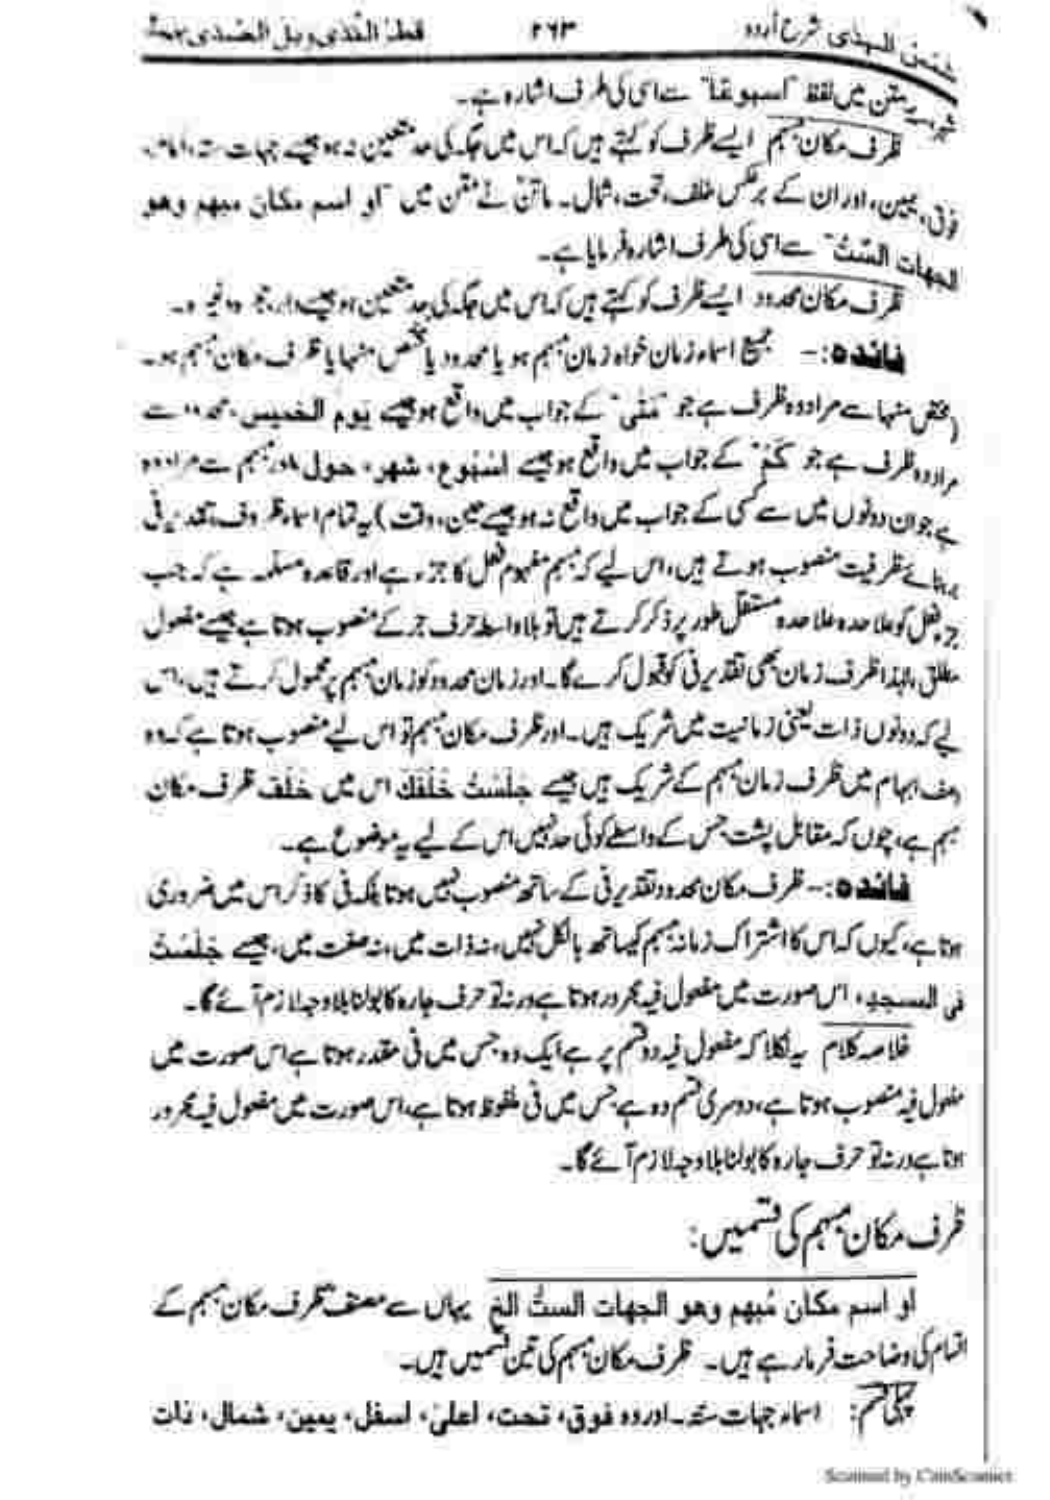 شرح اردو ۲۶۳ قطر الندی وبل الصدی
متن میں لفظ "اسبوعًا" سے اسی کی طرف اشارہ ہے۔
ظرف مکان مبہم ایسے ظرف کو کہتے ہیں کہ اس میں جگہ کی حد متعین نہ ہو جیسے جہات ستہ، امام،
فوق، یمین، اور ان کے برعکس خلف، تحت، شمال۔ ماتنؒ نے متن میں "او اسم مکان مبهم وهو
الجهات السّتُ" سے اسی کی طرف اشارہ فرمایا ہے۔
ظرف مکان محدود ایسے ظرف کو کہتے ہیں کہ اس میں جگہ کی حد متعین ہو جیسے دار، وغیرہ۔
فائدہ:- جمیع اسماء زمان خواہ زمان مبہم ہو یا محدود یا مختص منہا یا ظرف مکان مبہم ہو۔
(مختص منہا سے مراد وہ ظرف ہے جو "مَتٰی" کے جواب میں واقع ہو جیسے یوم الخمیس، محدود سے
مراد وہ ظرف ہے جو "کَمْ" کے جواب میں واقع ہو جیسے اسبُوع، شهر، حول اور مبہم سے مراد وہ
ہے جو ان دونوں میں سے کسی کے جواب میں واقع نہ ہو جیسے حین، وقت) یہ تمام اسماء ظروف بتقدیر فی
بربنائے ظرفیت منصوب ہوتے ہیں، اس لیے کہ مبہم مفہوم فعل کا جزء ہے اور قاعدہ مسلّمہ ہے کہ جب
جزء فعل کو علاحدہ علاحدہ مستقل طور پر ذکر کرتے ہیں تو بلا واسطہ حرف جر کے منصوب ہوتا ہے جیسے مفعول
مطلق، لہٰذا ظرف زمان بھی تقدیر فی کو قبول کرے گا۔ اور زمان محدود کو زمان مبہم پر محمول کرتے ہیں، اس
لیے کہ دونوں ذات یعنی زمانیت میں شریک ہیں۔ اور ظرف مکان مبہم تو اس لیے منصوب ہوتا ہے کہ وہ
وصف ابہام میں ظرف زمان مبہم کے شریک ہیں جیسے جَلَسْتُ خَلْفَكَ اس میں خَلْف ظرف مکان
مبہم ہے، چوں کہ مقابل پشت جس کے واسطے کوئی حد نہیں اس کے لیے یہ موضوع ہے۔
فائدہ:- ظرف مکان محدود تقدیر فی کے ساتھ منصوب نہیں ہوتا بلکہ فی کا ذکر اس میں ضروری
ہوتا ہے، کیوں کہ اس کا اشتراک زمانہ مبہم کیساتھ بالکل نہیں، نہ ذات میں، نہ صفت میں، جیسے جَلَسْتُ
فی المسجدِ، اس صورت میں مفعول فیہ مجرور ہوتا ہے ورنہ تو حرف جارہ کا بولنا بلا وجہ لازم آئے گا۔
خلاصہ کلام یہ نکلا کہ مفعول فیہ دو قسم پر ہے ایک وہ جس میں فی مقدر ہوتا ہے اس صورت میں
مفعول فیہ منصوب ہوتا ہے، دوسری قسم وہ ہے جس میں فی ملفوظ ہوتا ہے، اس صورت میں مفعول فیہ مجرور
ہوتا ہے ورنہ تو حرف جارہ کا بولنا بلا وجہ لازم آئے گا۔
ظرف مکان مبہم کی قسمیں:
او اسم مكان مُبهم وهو الجهات الستُّ الخ یہاں سے مصنفؒ ظرف مکان مبہم کے
اقسام کی وضاحت فرمارہے ہیں۔ ظرف مکان مبہم کی تین قسمیں ہیں۔
پہلی قسم: اسماء جہات ستہ۔ اور وہ فوق، تحت، اعلیٰ، اسفل، یمین، شمال، ذات
Scanned by CamScanner